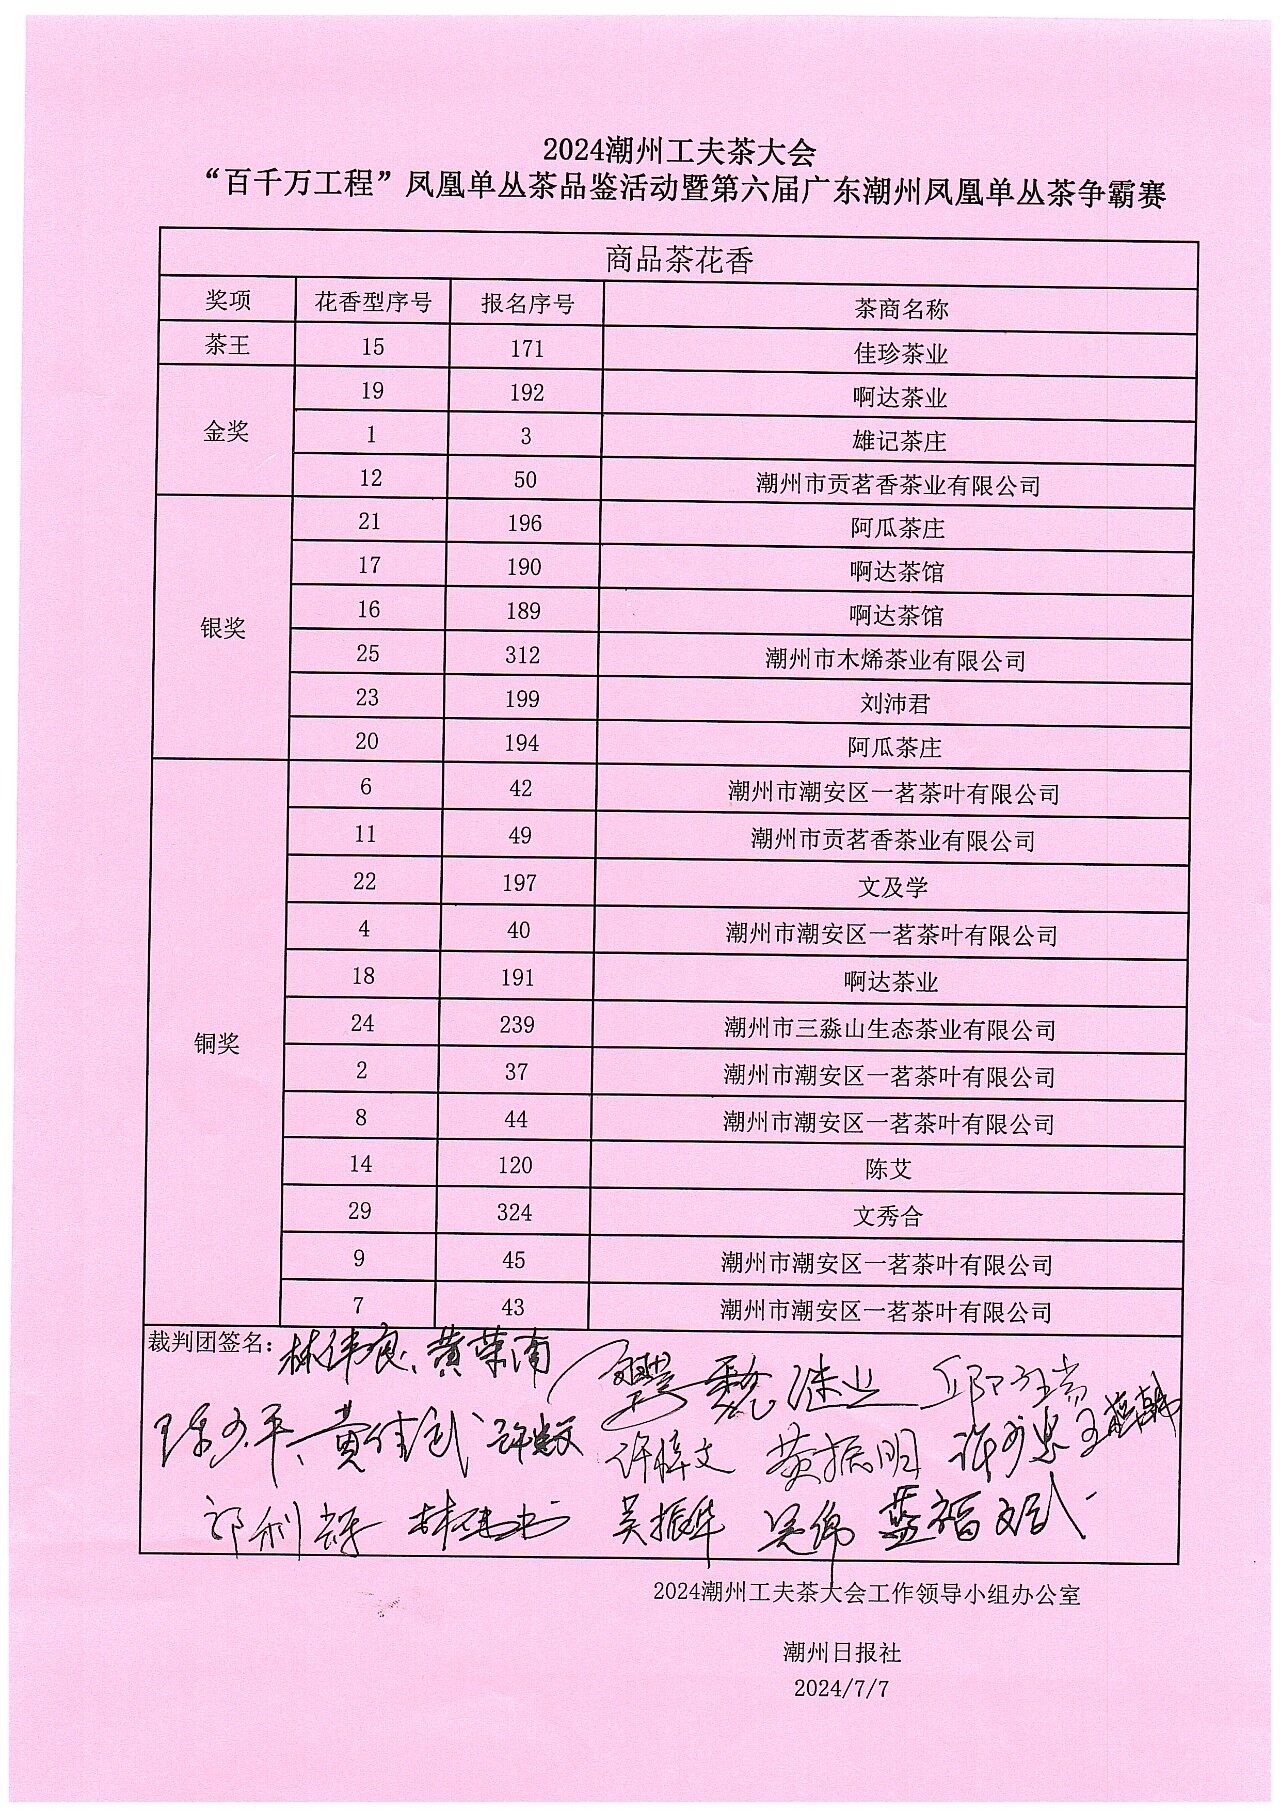 2024潮州工夫茶大会
“百千万工程”凤凰单丛茶品鉴活动暨第六届广东潮州凤凰单丛茶争霸赛
商品茶花香
奖项 花香型序号 报名序号 茶商名称
茶王 15 171 佳珍茶业
金奖 19 192 啊达茶业
1 3 雄记茶庄
12 50 潮州市贡茗香茶业有限公司
银奖 21 196 阿瓜茶庄
17 190 啊达茶馆
16 189 啊达茶馆
25 312 潮州市木烯茶业有限公司
23 199 刘沛君
20 194 阿瓜茶庄
铜奖 6 42 潮州市潮安区一茗茶叶有限公司
11 49 潮州市贡茗香茶业有限公司
22 197 文及学
4 40 潮州市潮安区一茗茶叶有限公司
18 191 啊达茶业
24 239 潮州市三淼山生态茶业有限公司
2 37 潮州市潮安区一茗茶叶有限公司
8 44 潮州市潮安区一茗茶叶有限公司
14 120 陈艾
29 324 文秀合
9 45 潮州市潮安区一茗茶叶有限公司
7 43 潮州市潮安区一茗茶叶有限公司
裁判团签名：林伟良、黄荣南 魏继业
陈少平、黄佳武 许梓文 黄振明
吴振华 吴伟 蓝福文
2024潮州工夫茶大会工作领导小组办公室
潮州日报社
2024/7/7